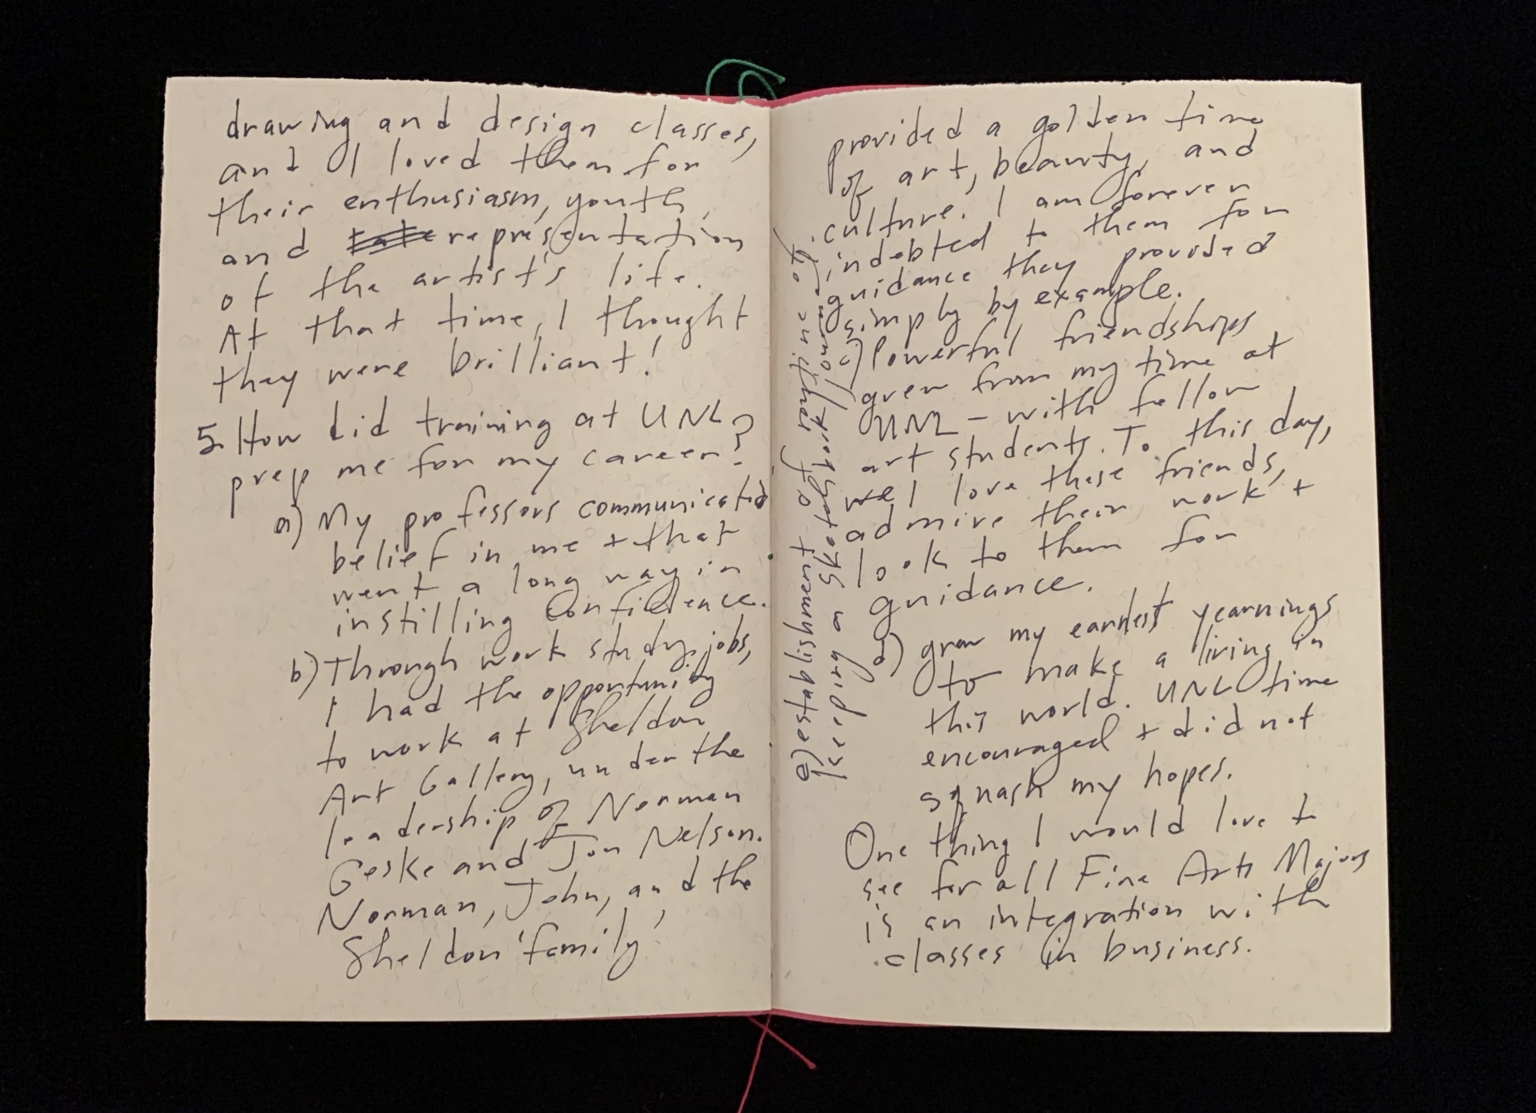 drawing and design classes,
and I loved them for
their enthusiasm, youth,
and representation
of the artist's life.
At that time, I thought
they were brilliant!
5. How did training at UNL
prep me for my career?
a) My professors communicated
belief in me + that
went a long way in
instilling confidence.
b) Through work study jobs,
I had the opportunity
to work at Sheldon
Art Gallery, under the
leadership of Norman
Geske and Jon Nelson.
Norman, John, and the
Sheldon 'family'
provided a golden time
of art, beauty, and
culture. I am forever
indebted to them for
guidance they provided
simply by example.
c) Powerful friendships
grew from my time at
UNL - with fellow
art students. To this day,
I love these friends,
admire their work +
look to them for
guidance.
d) grew my earnest yearnings
to make a living in
this world. UNL time
encouraged + did not
squash my hopes.
One thing I would love to
see for all Fine Arts Majors
is an integration with
classes in business.